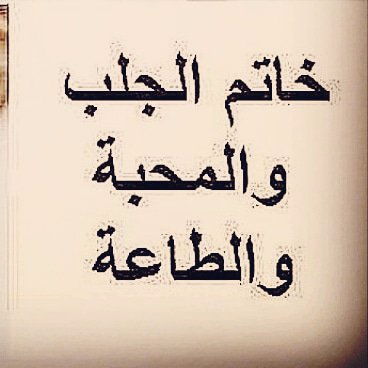 خاتم الجلب
والمحبة
والطاعة